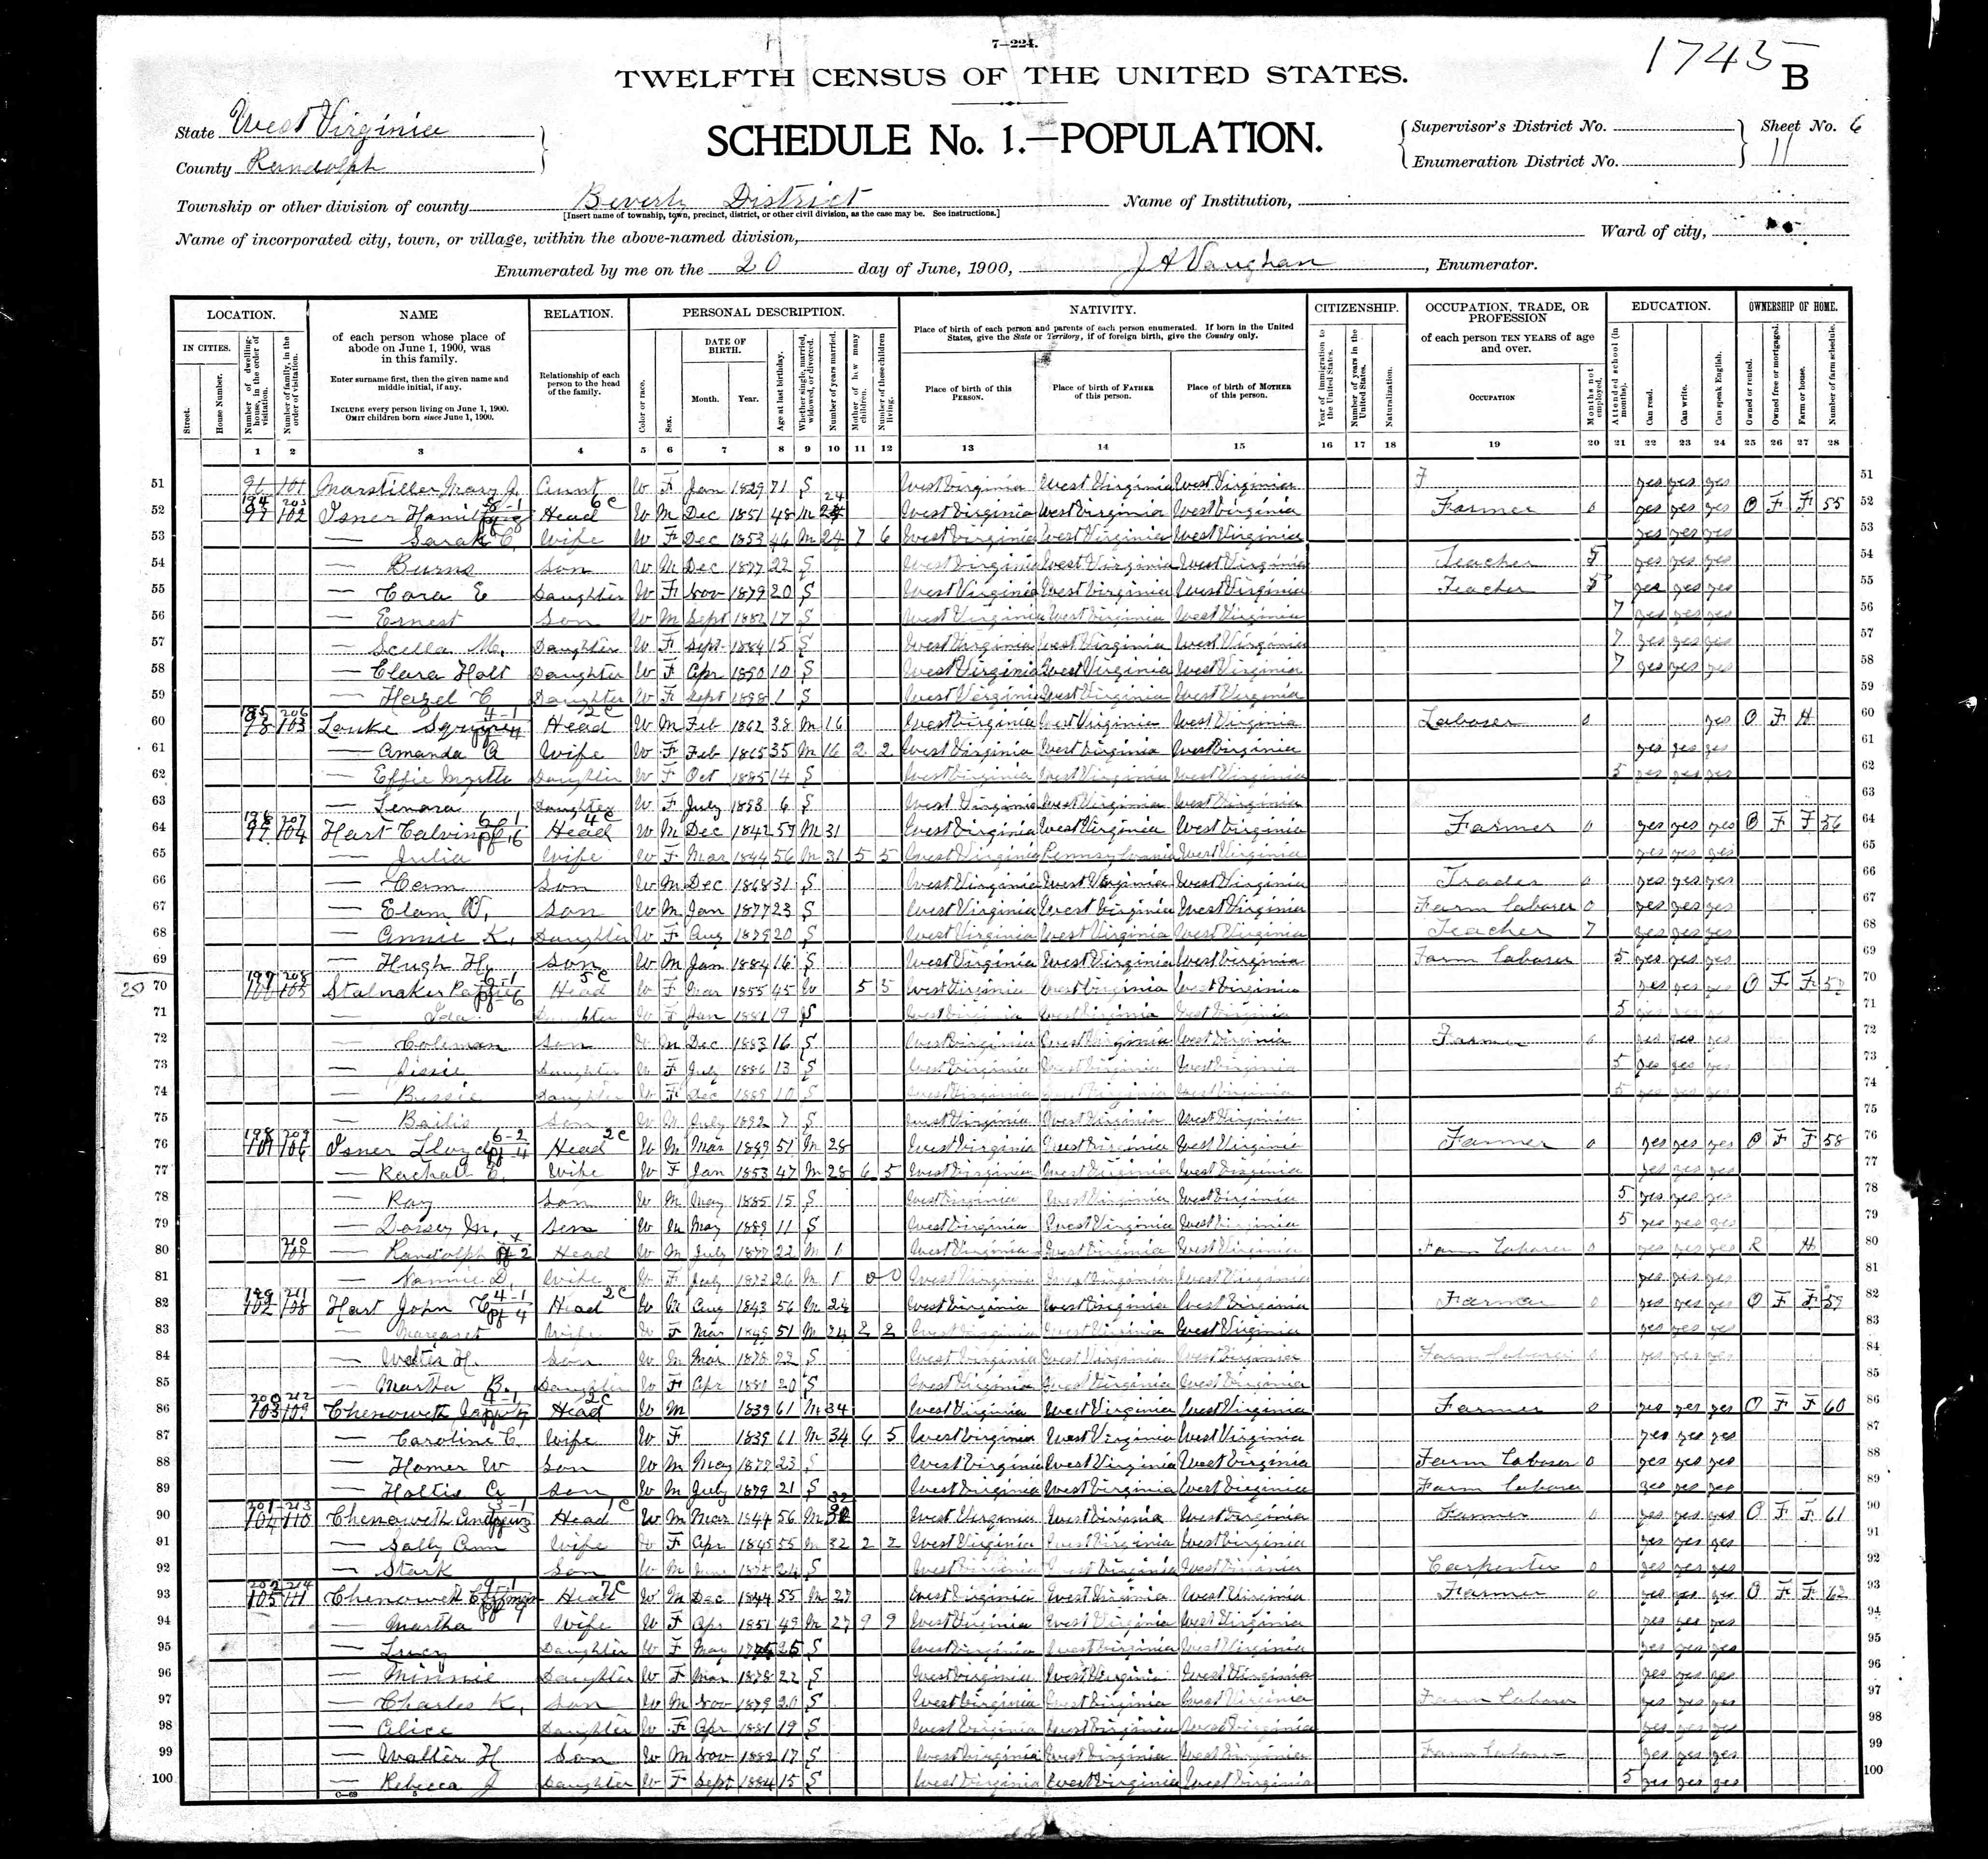 7—224.
1743
TWELFTH CENSUS OF THE UNITED STATES.
B
State West Virginia
County Randolph
SCHEDULE No. 1.—POPULATION.
Supervisor's District No.
Enumeration District No. 11
Sheet No. 6
Township or other division of county Beverly District
[Insert name of township, town, precinct, district, or other civil division, as the case may be. See instructions.]
Name of Institution,
Name of incorporated city, town, or village, within the above-named division,
Ward of city,
Enumerated by me on the 20 day of June, 1900, J A Vaughan, Enumerator.
LOCATION. NAME RELATION. PERSONAL DESCRIPTION. NATIVITY. CITIZENSHIP. OCCUPATION, TRADE, OR PROFESSION EDUCATION. OWNERSHIP OF HOME.
IN CITIES.
Street.
House Number.
Number of dwelling-house, in the order of visitation.
Number of family, in the order of visitation.
of each person whose place of abode on June 1, 1900, was in this family.
Enter surname first, then the given name and middle initial, if any.
INCLUDE every person living on June 1, 1900.
OMIT children born since June 1, 1900.
Relationship of each person to the head of the family.
Color or race.
Sex.
DATE OF BIRTH.
Month. Year.
Age at last birthday.
Whether single, married, widowed, or divorced.
Number of years married.
Mother of how many children.
Number of these children living.
Place of birth of each person and parents of each person enumerated. If born in the United States, give the State or Territory, if of foreign birth, give the Country only.
Place of birth of this PERSON.
Place of birth of FATHER of this person.
Place of birth of MOTHER of this person.
Year of immigration to the United States.
Number of years in the United States.
Naturalization.
of each person TEN YEARS of age and over.
OCCUPATION
Months not employed.
Attended school (in months).
Can read.
Can write.
Can speak English.
Owned or rented.
Owned free or mortgaged.
Farm or house.
Number of farm schedule.
1 2 3 4 5 6 7 8 9 10 11 12 13 14 15 16 17 18 19 20 21 22 23 24 25 26 27 28
51 Marstiller Mary Aunt W F Jan 1829 71 S West Virginia West Virginia West Virginia yes yes yes 51
52 102 Isner Head W M Dec 1851 48 M West Virginia West Virginia West Virginia Farmer 0 yes yes yes O F F 55 52
53 — Sarah C. Wife W F Dec 1853 46 M 24 7 6 West Virginia West Virginia West Virginia yes yes yes 53
54 — Burns Son W M Dec 1877 22 S West Virginia West Virginia West Virginia Teacher yes yes yes 54
55 — Cora E Daughter W F Nov 1879 20 S West Virginia West Virginia West Virginia Teacher yes yes yes 55
56 — Ernest Son W M Sept 1882 17 S West Virginia West Virginia West Virginia 7 yes yes yes 56
57 — M. Daughter W F Sept 1884 15 S West Virginia West Virginia West Virginia 7 yes yes yes 57
58 — Clara Holt Daughter W F Apr 1890 10 S West Virginia West Virginia West Virginia 7 yes yes yes 58
59 — Hazel C Daughter W F Sept 1898 1 S West Virginia West Virginia West Virginia 59
60 98 103 Head W M Feb 1862 38 M 16 West Virginia West Virginia West Virginia Laborer 0 yes O F H 60
61 — Amanda A Wife W F Feb 1865 35 M 16 2 2 West Virginia West Virginia West Virginia yes yes yes 61
62 — Effie Myrtle Daughter W F Oct 1885 14 S West Virginia West Virginia West Virginia 5 yes yes yes 62
63 — Lenora Daughter W F July 1893 6 S West Virginia West Virginia West Virginia 63
64 99 104 Hart Calvin Head W M Dec 1842 57 M 31 West Virginia West Virginia West Virginia Farmer 0 yes yes yes O F F 56 64
65 — Julia Wife W F Mar 1844 56 M 31 5 5 West Virginia Pennsylvania West Virginia yes yes yes 65
66 — Cam Son W M Dec 1868 31 S West Virginia West Virginia West Virginia Trader 0 yes yes yes 66
67 — Elam Son W M Jan 1877 23 S West Virginia West Virginia West Virginia Farm Laborer 0 yes yes yes 67
68 — Annie K. Daughter W F Aug 1879 20 S West Virginia West Virginia West Virginia Teacher 7 yes yes yes 68
69 — Hugh H. Son W M Jan 1884 16 S West Virginia West Virginia West Virginia Farm Laborer 5 yes yes yes 69
70 100 105 Stalnaker Head W F Mar 1855 45 W 5 5 West Virginia West Virginia West Virginia yes yes yes O F F 57 70
71 — Ida Daughter W F Jan 1881 19 S West Virginia West Virginia West Virginia 5 yes yes 71
72 — Coleman Son W M Dec 1883 16 S West Virginia West Virginia West Virginia Farmer 0 yes yes yes 72
73 — Daughter W F July 1886 13 S West Virginia West Virginia West Virginia 5 yes yes yes 73
74 — Bessie Daughter W F Dec 1889 10 S West Virginia West Virginia West Virginia 5 yes yes yes 74
75 — Son W M July 1892 7 S West Virginia West Virginia West Virginia 75
76 101 106 Isner Lloyd Head W M Mar 1849 51 M 28 West Virginia West Virginia West Virginia Farmer 0 yes yes yes O F F 58 76
77 — Rachall E. Wife W F Jan 1853 47 M 28 6 5 West Virginia West Virginia West Virginia yes yes yes 77
78 — Ray Son W M May 1885 15 S West Virginia West Virginia West Virginia 5 yes yes yes 78
79 — Dorsey M. Son W M May 1889 11 S West Virginia West Virginia West Virginia 5 yes yes yes 79
80 107 — Randolph Head W M July 1877 22 M 1 West Virginia West Virginia West Virginia Farm Laborer 0 yes yes yes R H 80
81 — Nannie D. Wife W F July 1873 26 M 1 0 0 West Virginia West Virginia West Virginia yes yes yes 81
82 102 108 Hart John Head W M Aug 1843 56 M 24 West Virginia West Virginia West Virginia Farmer 0 yes yes yes O F F 59 82
83 — Margaret Wife W F Mar 1849 51 M 24 2 2 West Virginia West Virginia West Virginia yes yes yes 83
84 — Walter H. Son W M Mar 1878 22 S West Virginia West Virginia West Virginia Farm Laborer 0 yes yes yes 84
85 — Martha B. Daughter W F Apr 1880 20 S West Virginia West Virginia West Virginia 85
86 103 109 Chenoweth Head W M 1839 61 M 34 West Virginia West Virginia West Virginia Farmer 0 yes yes yes O F F 60 86
87 — Caroline C. Wife W F 1839 61 M 34 6 5 West Virginia West Virginia West Virginia yes yes yes 87
88 — Homer W Son W M May 1877 23 S West Virginia West Virginia West Virginia Farm Laborer 0 yes yes yes 88
89 — Son W M July 1879 21 S West Virginia West Virginia West Virginia Farm Laborer yes yes yes 89
90 104 110 Chenoweth Andrew Head W M Mar 1844 56 M West Virginia West Virginia West Virginia Farmer 0 yes yes yes O F F 61 90
91 — Sally Ann Wife W F Apr 1845 55 M 32 2 2 West Virginia West Virginia West Virginia yes yes yes 91
92 — Stark Son W M June 1875 24 S West Virginia West Virginia West Virginia Carpenter 0 yes yes yes 92
93 105 111 Chenoweth Head W M Dec 1844 55 M 27 West Virginia West Virginia West Virginia Farmer 0 yes yes yes O F F 62 93
94 — Martha Wife W F Apr 1851 49 M 27 9 9 West Virginia West Virginia West Virginia yes yes yes 94
95 — Lucy Daughter W F May 25 S West Virginia West Virginia West Virginia yes yes yes 95
96 — Minnie Daughter W F Mar 1878 22 S West Virginia West Virginia West Virginia yes yes yes 96
97 — Charles K. Son W M Nov 1879 20 S West Virginia West Virginia West Virginia Farm Laborer yes yes yes 97
98 — Alice Daughter W F Apr 1881 19 S West Virginia West Virginia West Virginia yes yes yes 98
99 — Walter H Son W M Nov 1882 17 S West Virginia West Virginia West Virginia Farm Laborer yes yes yes 99
100 — Rebecca J Daughter W F Sept 1884 15 S West Virginia West Virginia West Virginia 5 yes yes yes 100